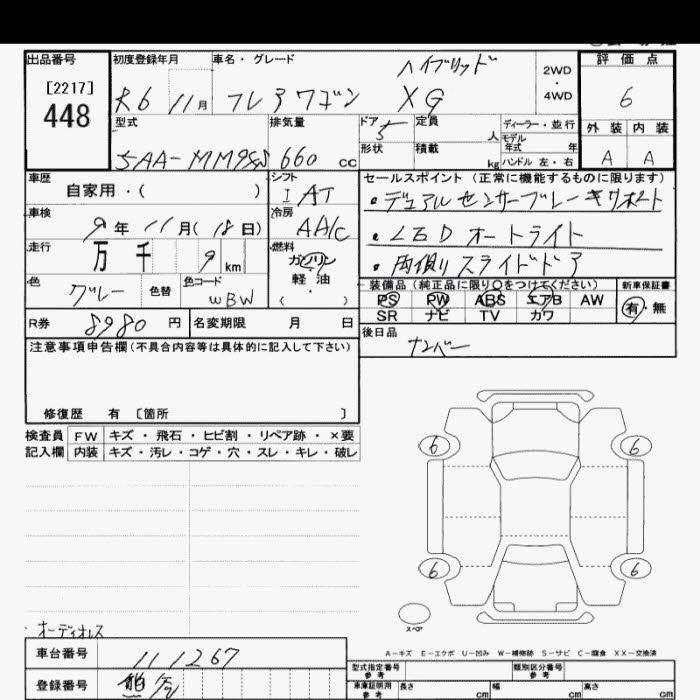 出品番号 初度登録年月 車名・グレード 評価点
[2217]
448
R6 11月 フレアワゴン ハイブリッド XG 2WD・4WD 6
外装 内装
A A
型式 排気量 ドア 定員 ディーラー・並行
5AA- 660cc 5 人 モデル年式 年
形状 積載 kg ハンドル 左・右
車歴 シフト セールスポイント (正常に機能するものに限ります)
自家用・( ) I AT ・デュアルセンサーブレーキサポート
車検 冷房
9年11月(18日) AA/C ・LED オートライト
走行 燃料
万 千 9km ガソリン ・両側スライドドア
軽・油
・
( )
色 色替 色コード 装備品 (純正品に限り○をつけてください) 新車保証書
グレー WBW PS PW ABS エアB AW 有・無
SR ナビ TV カワ
R券 8980円 名変期限 月 日 後日品
ナンバー
注意事項申告欄(不具合内容等は具体的に記入して下さい)
修復歴 有 〔箇所 〕
検査員 FW キズ・飛石・ヒビ割・リペア跡・×要
記入欄 内装 キズ・汚レ・コゲ・穴・スレ・キレ・破レ
6 6
6 6
スペア
オーディオレス
A-キズ E-エクボ U-凹み W-補修跡 S-サビ C-腐食 XX-交換済
車台番号 111267
型式指定番号 参考 類別区分番号 参考
登録番号
車庫証明用 参考 長さ cm 幅 cm 高さ cm